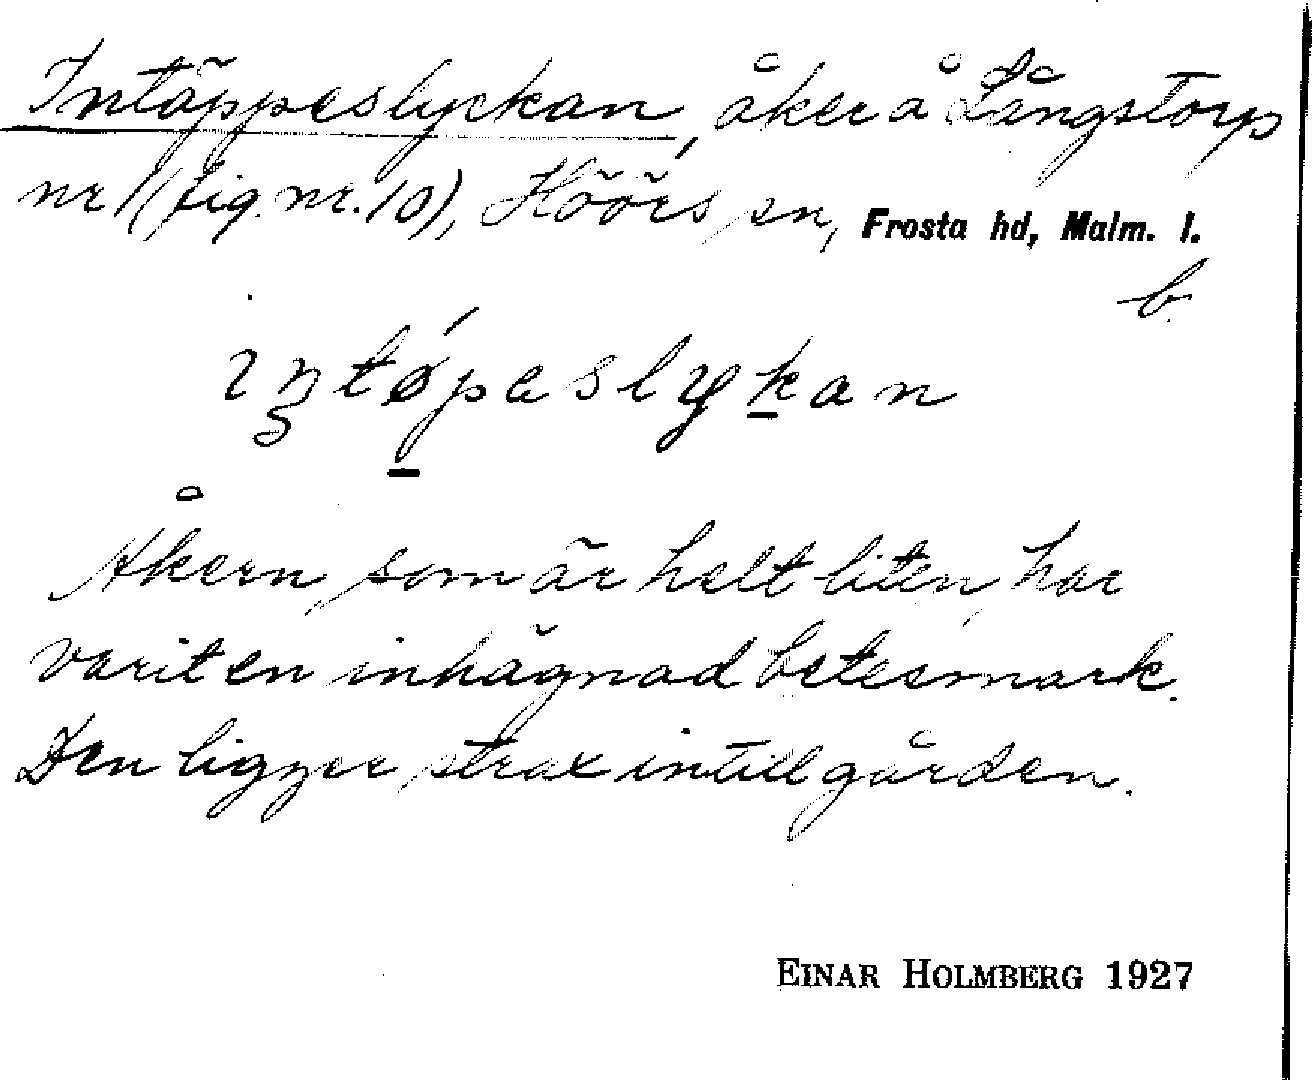 Intäppeslyckan, åker å Långstorp
nr 1 (fig. nr. 10), Höörs sn, Frosta hd, Malm. l.
b.
Åkern, som är helt liten, har
varit en inhägnad betesmark.
Den ligger strax intill gården.
EINAR HOLMBERG 1927